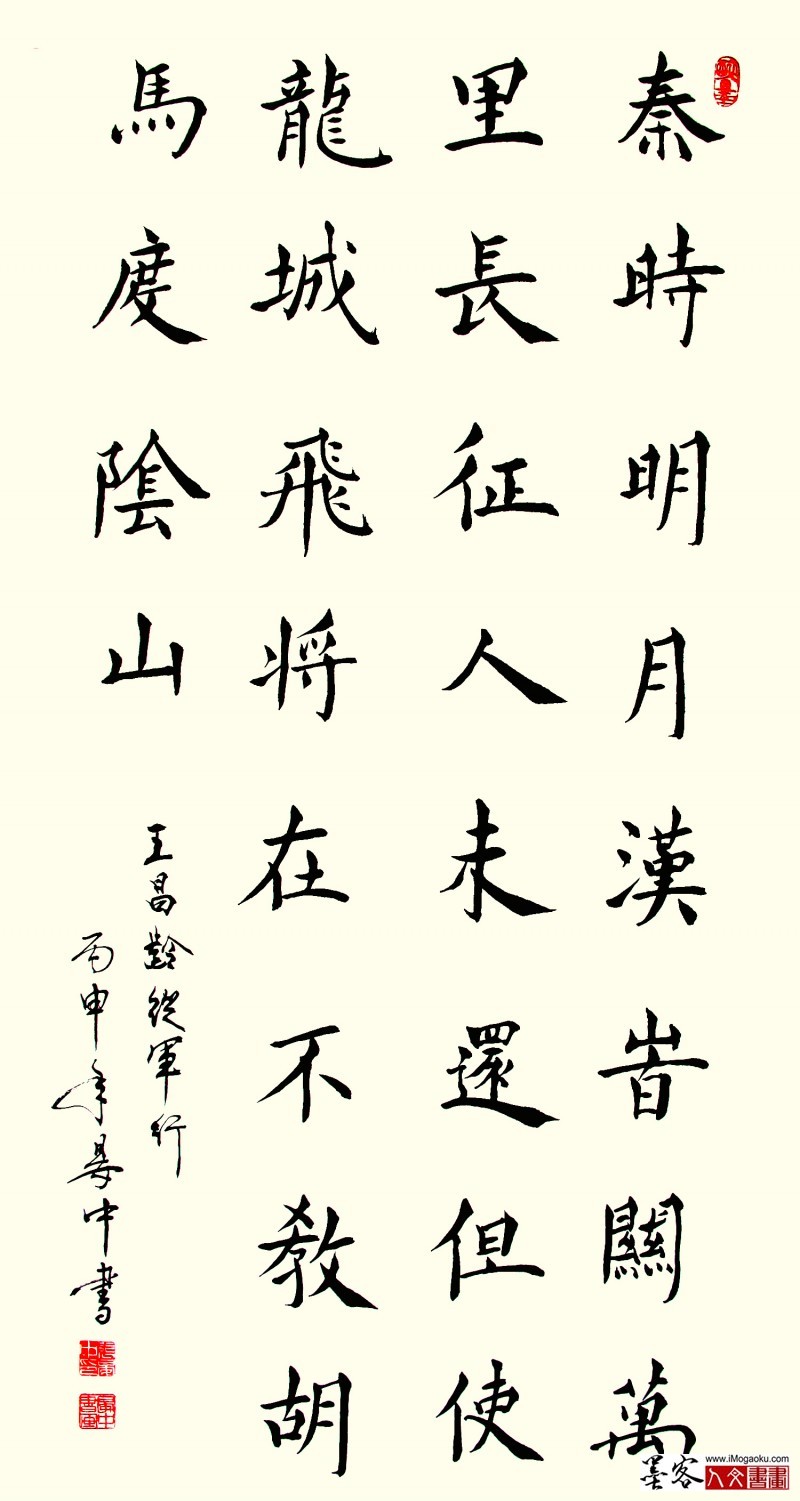 秦時明月漢旹關萬
里長征人未還但使
龍城飛将在不教胡
馬度陰山
王昌齡從軍行
丙申年晏中書
墨客
www.iMogaoku.com
人文書畫